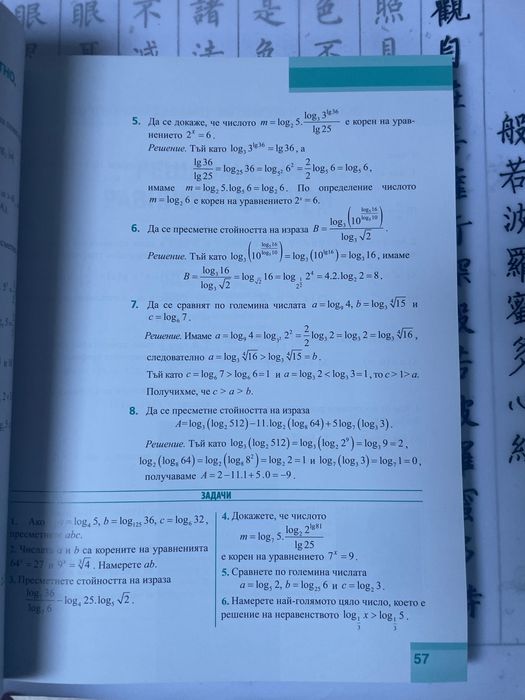 眼 眼 不 諸 是 色 照
觀自
般若波羅蜜多心經
5. Да се докаже, че числото m = log₂ 5. log₃ 3^(lg 36) / lg 25 е корен на урав-
нението 2ˣ = 6.
Решение. Тъй като log₃ 3^(lg 36) = lg 36, а
lg 36 / lg 25 = log₂₅ 36 = log_(5²) 6² = 2/2 log₅ 6 = log₅ 6,
имаме m = log₂ 5. log₅ 6 = log₂ 6. По определение числото
m = log₂ 6 е корен на уравнението 2ˣ = 6.
6. Да се пресметне стойността на израза B = log₃ (10^(log₅ 16 / log₅ 10)) / log₃ √2.
Решение. Тъй като log₃ (10^(log₅ 16 / log₅ 10)) = log₃ (10^(lg 16)) = log₃ 16, имаме
B = log₃ 16 / log₃ √2 = log_(√2) 16 = log_(2^(1/2)) 2⁴ = 4.2. log₂ 2 = 8.
7. Да се сравнят по големина числата a = log₉ 4, b = log₃ ∜15 и
c = log₆ 7.
Решение. Имаме a = log₉ 4 = log_(3²) 2² = 2/2 log₃ 2 = log₃ 2 = log₃ ∜16,
следователно a = log₃ ∜16 > log₃ ∜15 = b.
Тъй като c = log₆ 7 > log₆ 6 = 1 и a = log₃ 2 < log₃ 3 = 1, то c > 1 > a.
Получихме, че c > a > b.
8. Да се пресметне стойността на израза
A = log₃ (log₂ 512) − 11. log₂ (log₈ 64) + 5 log₇ (log₃ 3).
Решение. Тъй като log₃ (log₂ 512) = log₃ (log₂ 2⁹) = log₃ 9 = 2,
log₂ (log₈ 64) = log₂ (log₈ 8²) = log₂ 2 = 1 и log₇ (log₃ 3) = log₇ 1 = 0,
получаваме A = 2 − 11.1 + 5.0 = −9.
ЗАДАЧИ
1. Ако 5, b = log₁₂₅ 36, c = log₆ 32,
пресметнете abc.
2. Числата a и b са корените на уравненията
64ᵃ = 27 и 9ᵇ = ∛4. Намерете ab.
3. Пресметнете стойността на израза
36 / log₃ 6 − log₄ 25. log₅ √2.
4. Докажете, че числото
m = log₇ 5. log₂ 2^(lg 81) / lg 25
е корен на уравнението 7ˣ = 9.
5. Сравнете по големина числата
a = log₅ 2, b = log₂₅ 6 и c = log₂ 3.
6. Намерете най-голямото цяло число, което е
решение на неравенството log_(1/3) x > log_(1/3) 5.
57